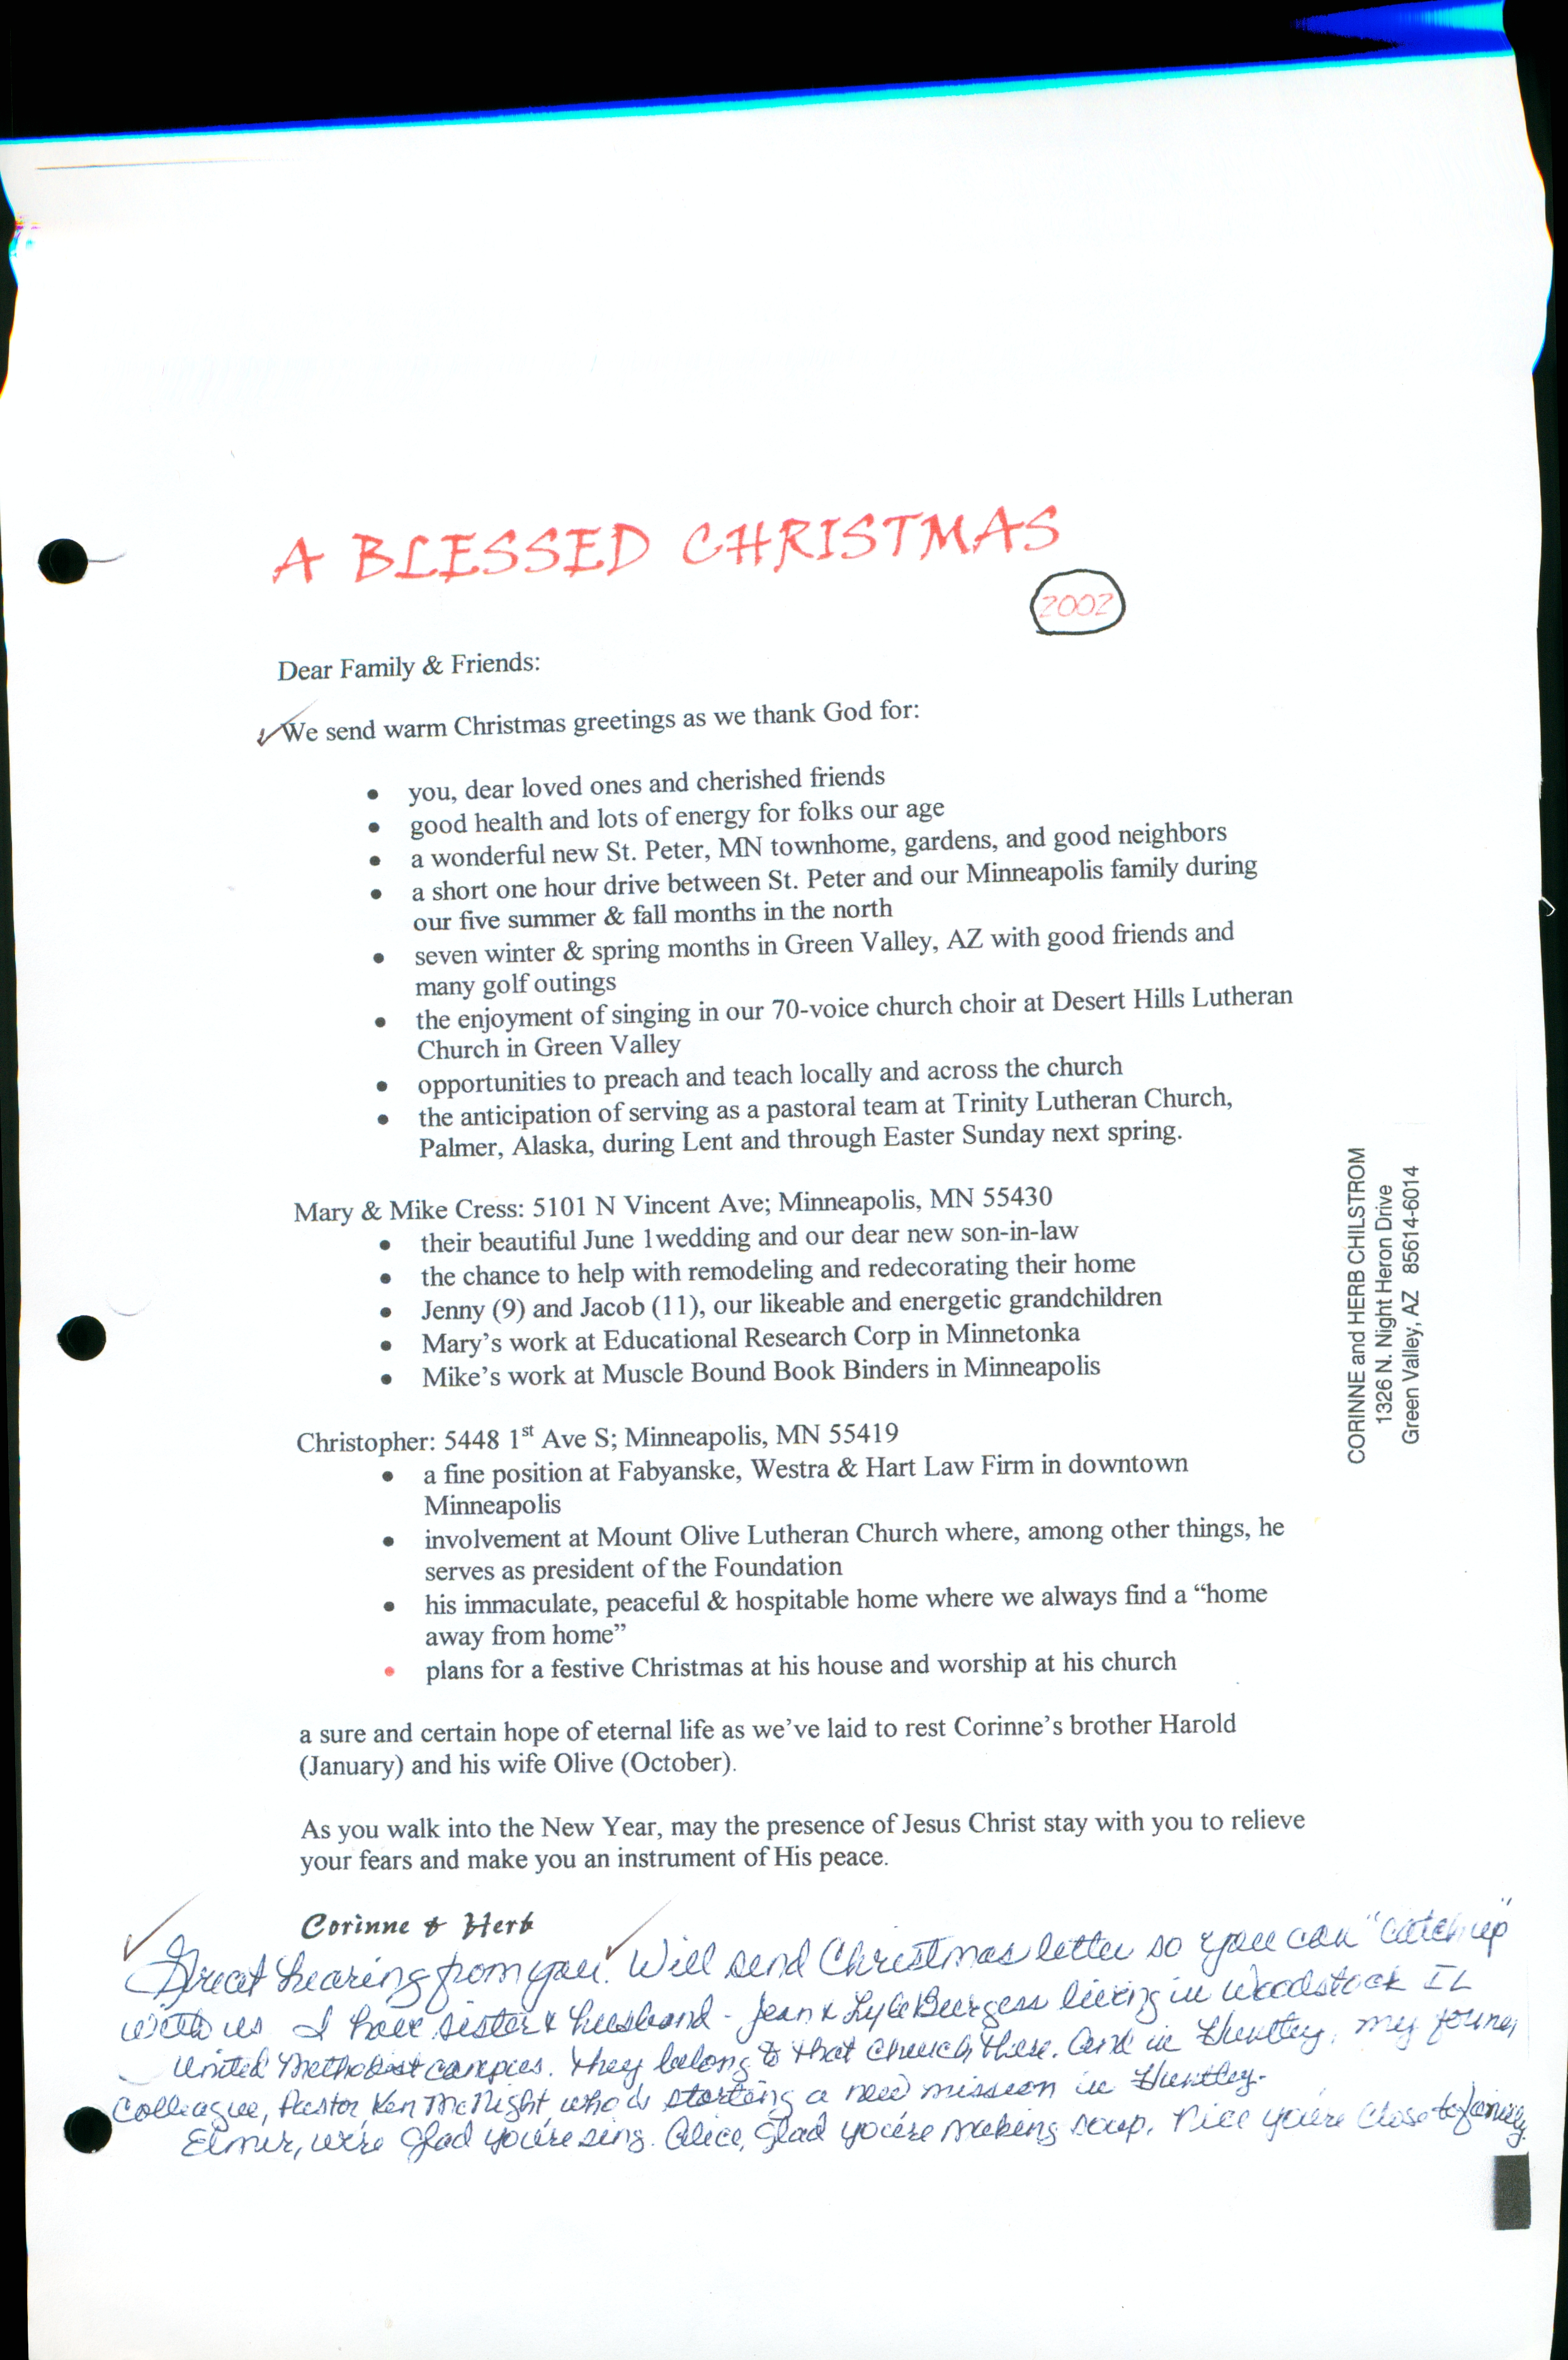 A BLESSED CHRISTMAS
2002
Dear Family & Friends:
We send warm Christmas greetings as we thank God for:
• you, dear loved ones and cherished friends
• good health and lots of energy for folks our age
• a wonderful new St. Peter, MN townhome, gardens, and good neighbors
• a short one hour drive between St. Peter and our Minneapolis family during
our five summer & fall months in the north
• seven winter & spring months in Green Valley, AZ with good friends and
many golf outings
• the enjoyment of singing in our 70-voice church choir at Desert Hills Lutheran
Church in Green Valley
• opportunities to preach and teach locally and across the church
• the anticipation of serving as a pastoral team at Trinity Lutheran Church,
Palmer, Alaska, during Lent and through Easter Sunday next spring.
Mary & Mike Cress: 5101 N Vincent Ave; Minneapolis, MN 55430
• their beautiful June 1wedding and our dear new son-in-law
• the chance to help with remodeling and redecorating their home
• Jenny (9) and Jacob (11), our likeable and energetic grandchildren
• Mary's work at Educational Research Corp in Minnetonka
• Mike's work at Muscle Bound Book Binders in Minneapolis
Christopher: 5448 1st Ave S; Minneapolis, MN 55419
• a fine position at Fabyanske, Westra & Hart Law Firm in downtown
Minneapolis
• involvement at Mount Olive Lutheran Church where, among other things, he
serves as president of the Foundation
• his immaculate, peaceful & hospitable home where we always find a “home
away from home”
• plans for a festive Christmas at his house and worship at his church
a sure and certain hope of eternal life as we've laid to rest Corinne's brother Harold
(January) and his wife Olive (October).
As you walk into the New Year, may the presence of Jesus Christ stay with you to relieve
your fears and make you an instrument of His peace.
Corinne & Herb
Great hearing from you. Will send Christmas letter so you can "catch up"
with us I have sister & husband - Jean & Lyle Burgess living in Woodstock IL
United Methodist campus. They belong to that church there. And in Huntley, my former
Colleague, Pastor Ken McNight, who is starting a new mission in Huntley.
Elmer, we're glad you're sing. Alice, glad you're making soup. Nice you're close to family.
CORINNE and HERB CHILSTROM
1326 N. Night Heron Drive
Green Valley, AZ 85614-6014